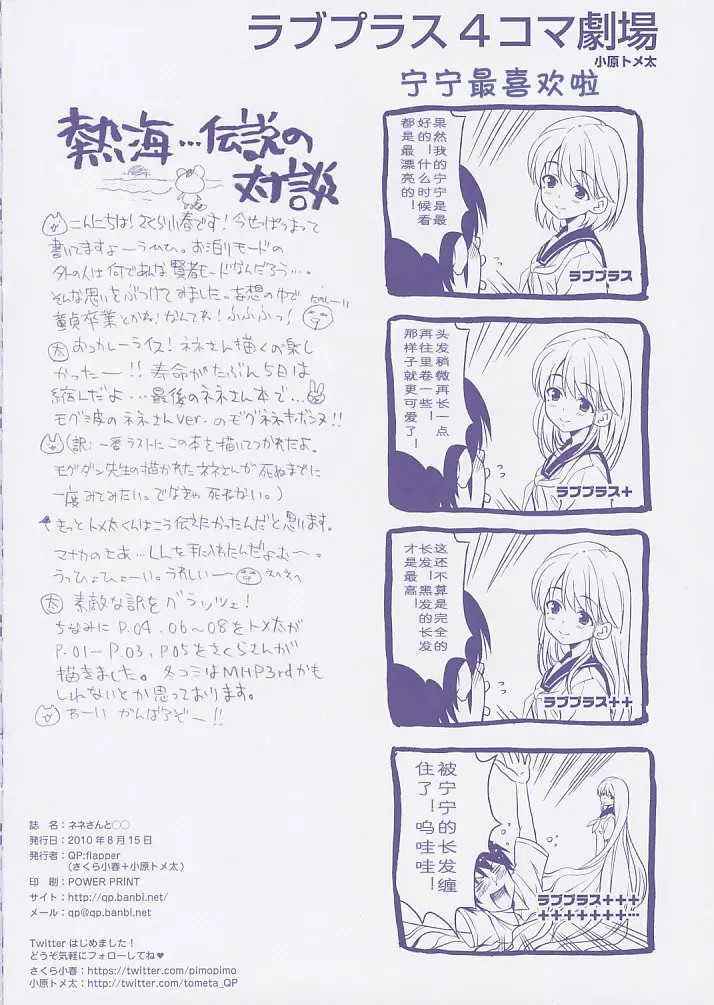 ラブプラス4コマ劇場
小原トメ太
宁宁最喜欢啦
果然我的宁宁是最
好的!什么时候看
都是最漂亮的!
ラブプラス
头发稍微再长一点
再往里卷一些!
那样子就更可爱了!
ラブプラス+
这还不算是完全的
长发!黑发的长发
才是最高!
ラブプラス++
被宁宁的长发缠
住了!呜哇哇!
ラブプラス+++
+++++++…
熱海…伝説の
対談
こんにちは!さくら小春です!今せっぱつまって
書いてますよーうひひ。お泊りモードの
外の人は何であんな賢者モードなんだろう…。
そんな思いをぶつけてみました。妄想の中で
童貞卒業とかね!なんてね!ふふふっ!
太 おっカレーライス!ネネさん描くの楽し
かったー!!寿命がたぶん5日は
縮んだよ…最後のネネさん本で…
モグ波のネネさんver.のモグネネキボンヌ!!
(訳:一番ラストにこの本を描いてつかれたよ。
モグダン先生の描かれたネネさんが死ぬまでに
一度みてみたい。でなきゃ死ねない。)
きっとトメ太くんはこう伝えたかったんだと思います。
マナカのとあ…LLを手に入れたんだよむ〜。
うっひょひょーい。うれしいー
太 素敵な訳をグラッツェ!
ちなみにP.04,06〜08をトメ太が
P.01-P.03,P05をさくらさんが
描きました。冬コミはMHP3rdかも
しれないとか思っております。
わーい がんばるぞー!!
誌 名:ネネさんと○○
発行日:2010年8月15日
発行者:QP:flapper
(さくら小春+小原トメ太)
印 刷:POWER PRINT
サイト:http://qp.banbi.net/
メール:qp@qp.banbi.net
Twitterはじめました!
どうぞ気軽にフォローしてね♥
さくら小春:https://twitter.com/pimopimo
小原トメ太:http://twitter.com/tometa_QP